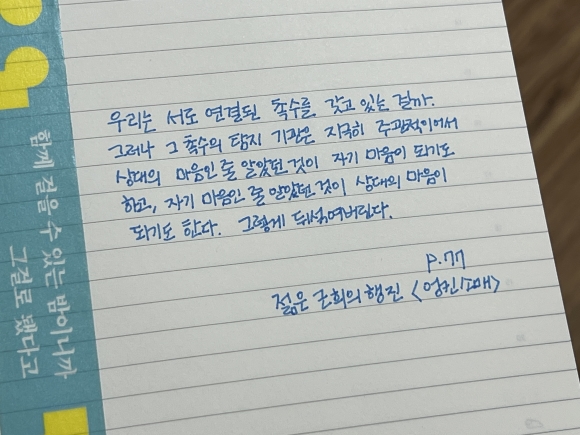 우리는 서로 연결된 촉수를 갖고 있는 걸까.
그러나 그 촉수의 탐지 기관은 지극히 주관적이어서
상대의 마음인 줄 알았던 것이 자기 마음이 되기도
하고, 자기 마음인 줄 알았던 것이 상대의 마음이
되기도 한다. 그렇게 뒤섞여버린다.
p.77
젊은 근희의 행진 <엉킨 소매>
함께 걸을 수 있는 밤이니까
그걸로 됐다고